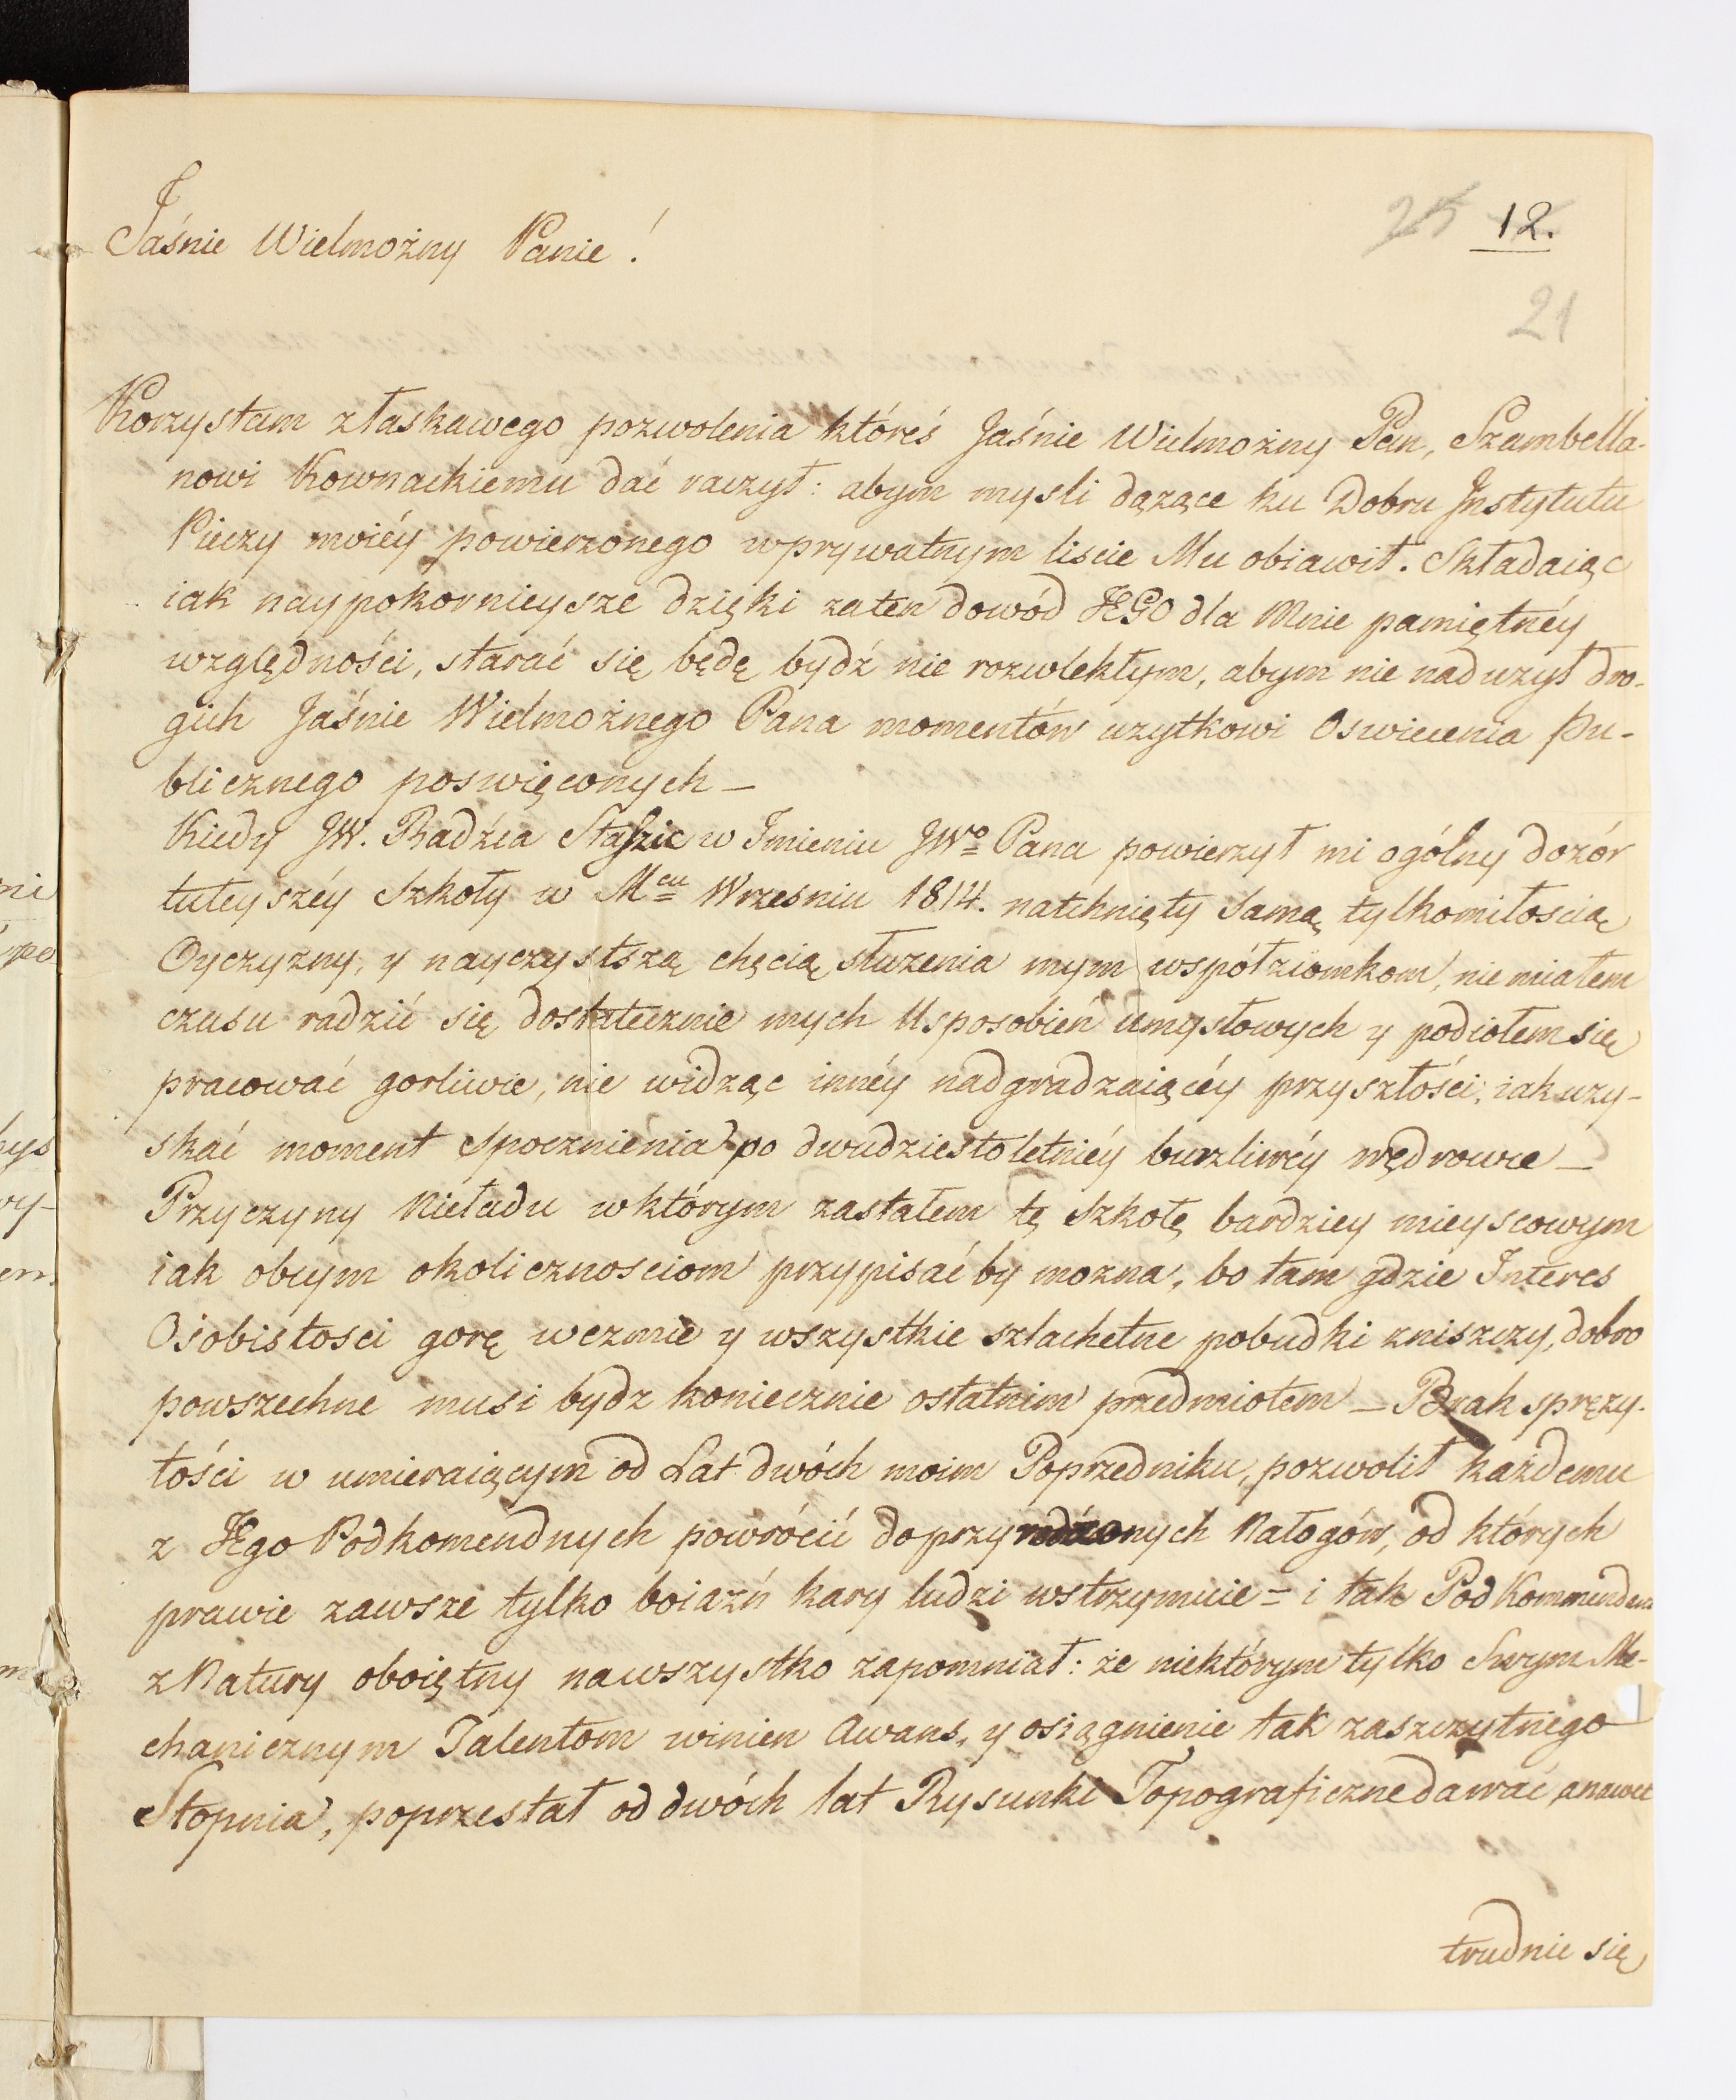 Jaśnie Wielmożny Panie!
25 12.
21
Korzystam złaskawego pozwolenia któreś Jaśnie Wielmożny Pan, Szambella-
nowi Kownackiemu dać raczył: abym mysli dążące ku Dobru Jnstytutu
Pieczy moiéy powierzonego wprywatnym liscie Mu obiawił. Składaiąc
iak naypokornieysze dzięki zaten dowód JEGO dla Mnie pamiętnéy
względności, starać się będę bydź nie rozwlekłym, abym nie nadużył dro-
gich Jaśnie Wielmożnego Pana momentów użytkowi Oswiecenia Pu-
blicznego poswięconych —
Kiedy JW. Radźca Staszic w Jmieniu JWo Pana powierzył mi ogólny dozór
tuteyszéy Szkoły w Mcu Wrzesniu 1814. natchnięty samą tylkomiłoscią
Oyczyzny, y nayczystszą chęcią służenia mym współziomkom, nie miałem
czasu radzić się dostatecznie mych Usposobień umysłowych y podiołem się
pracować gorliwie, nie widząc innéy nadgradzaiącéy przyszłości, iak uzy-
skać moment spocznienia po dwudziestoletniéy burzliwéy wędrowce —
Przyczyny Nieładu wktórym zastałem tę Szkołę bardziey mieyscowym
iak obcym okolicznosciom przypisać by mozna, bo tam gdzie Jnteres
Osobistosci gorę wezmie y wszystkie szlachetne pobudki zniszczy, dobro
powszechne musi bydz koniecznie ostatnim przedmiotem — Brak spręzy-
tości w umieraiącym od Lat dwóch moim Poprzedniku, pozwolił każdemu
z JEgo Podkomendnych powrócić doprzyrodzonych Nałogów, od których
prawie zawsze tylko boiaźń kary ludzi wstrzymuie = i tak Pod Kommendant
z Natury oboiętny nawszystko zapomniał: że niektórym tylko Swym Me-
chanicznym Talentom winien Awans, y osiągnienie tak zaszczytnego
Stopnia, poprzestał od dwóch lat Rysunki Topograficzne dawać, anawet
trudnić się